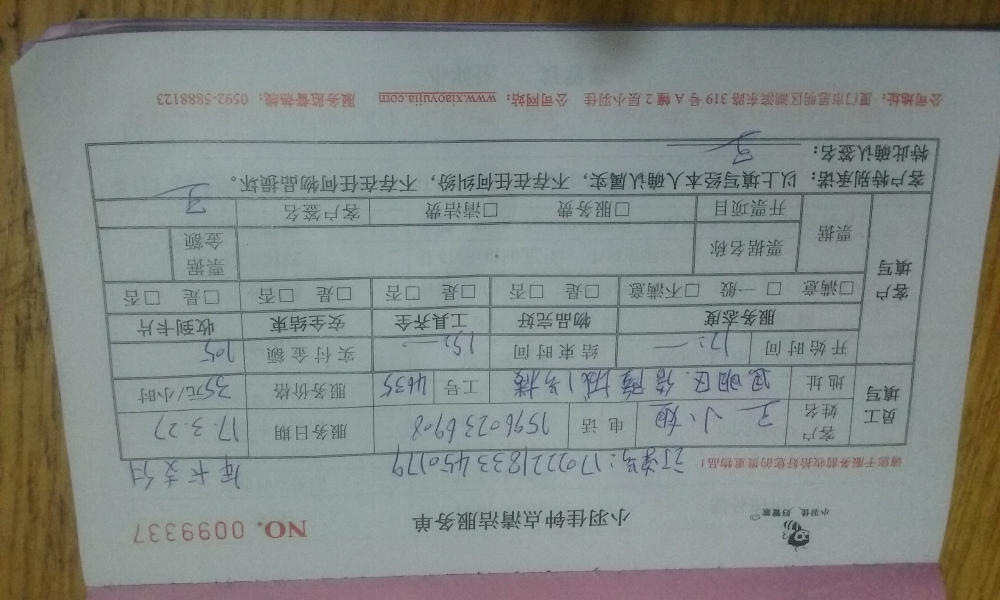 小羽佳 好管家
小羽佳钟点清洁服务单
NO. 0099337
请您于服务前收拾好您的贵重物品!
订单号:170221833450179
年卡支付
员工填写
客户姓名 王小姐 电话 15960236908 服务日期 17.3.27
地址 思明区 信隆城1号楼 工号 4635 服务价格 35元/小时
开始时间 12:— 结束时间 15:— 实付金额 105
客户填写
服务态度 物品完好 工具齐全 安全结束 收到卡片
□满意 □一般 □不满意 □是 □否 □是 □否 □是 □否 □是 □否
票据 票据名称 票据金额
开票项目 □服务费 □清洁费 客户签名 王
客户特别承诺:以上填写经本人确认属实,不存在任何纠纷,不存在任何物品损坏。
特此确认签名: 王
公司地址:厦门市思明区湖滨东路 319 号 A 幢 2 层小羽佳 公司网站:www.xiaoyujia.com 服务监督热线:0592-5888123